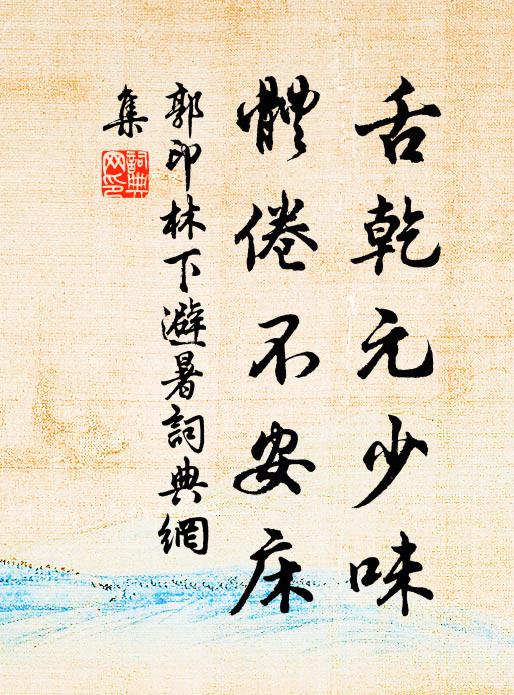 舌乾元少味
體倦不安床
郭印林下避暑詞典網
集
詞典
网印